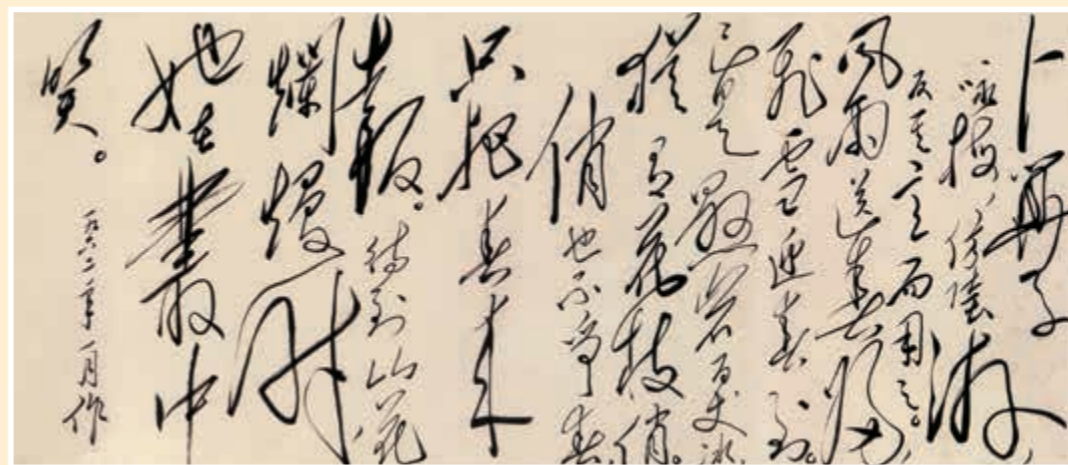 卜算子
詠梅,仿陸游,
反其意而用之。
風雨送春歸,
飛雪迎春到。
已是懸岩百丈冰,
猶有花枝俏。
俏也不争春,
只把春来
報。待到山花
爛熳时
她在叢中
笑。
一九六二年一月作